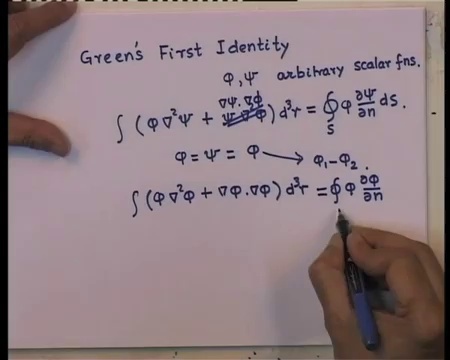 Green's First Identity
φ, ψ arbitrary scalar fns.
∇ψ.∇φ
∫ (φ∇²ψ + ) d³r = ∮ φ ∂ψ/∂n ds.
S
φ = ψ = φ → φ₁-φ₂.
∫ (φ∇²φ + ∇φ.∇φ) d³r = ∮ φ ∂φ/∂n